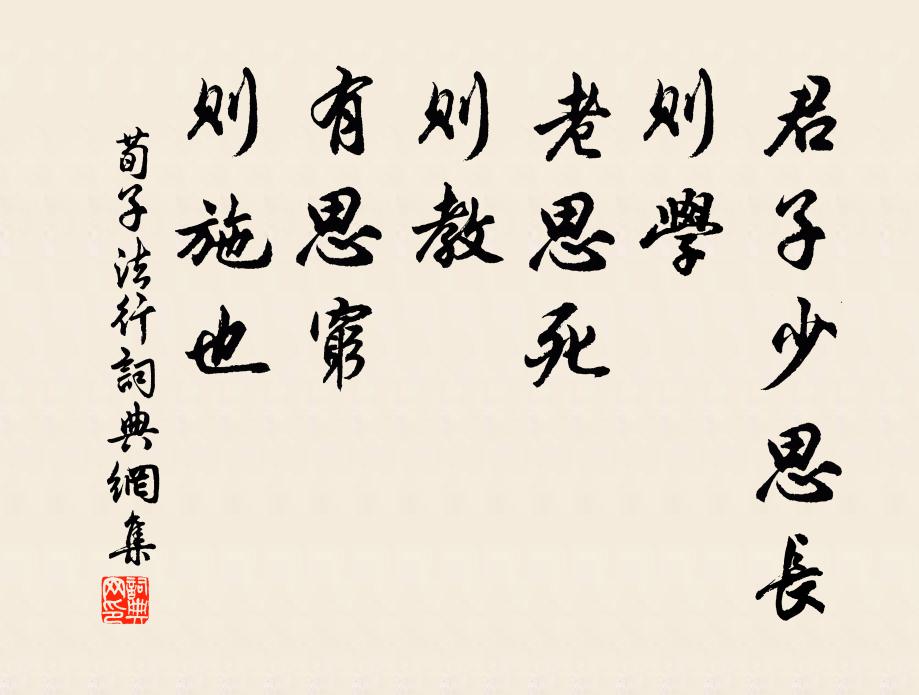 君子少思長
則學
老思死
則教
有思窮
則施也
荀子法行詞典網集
詞典网印